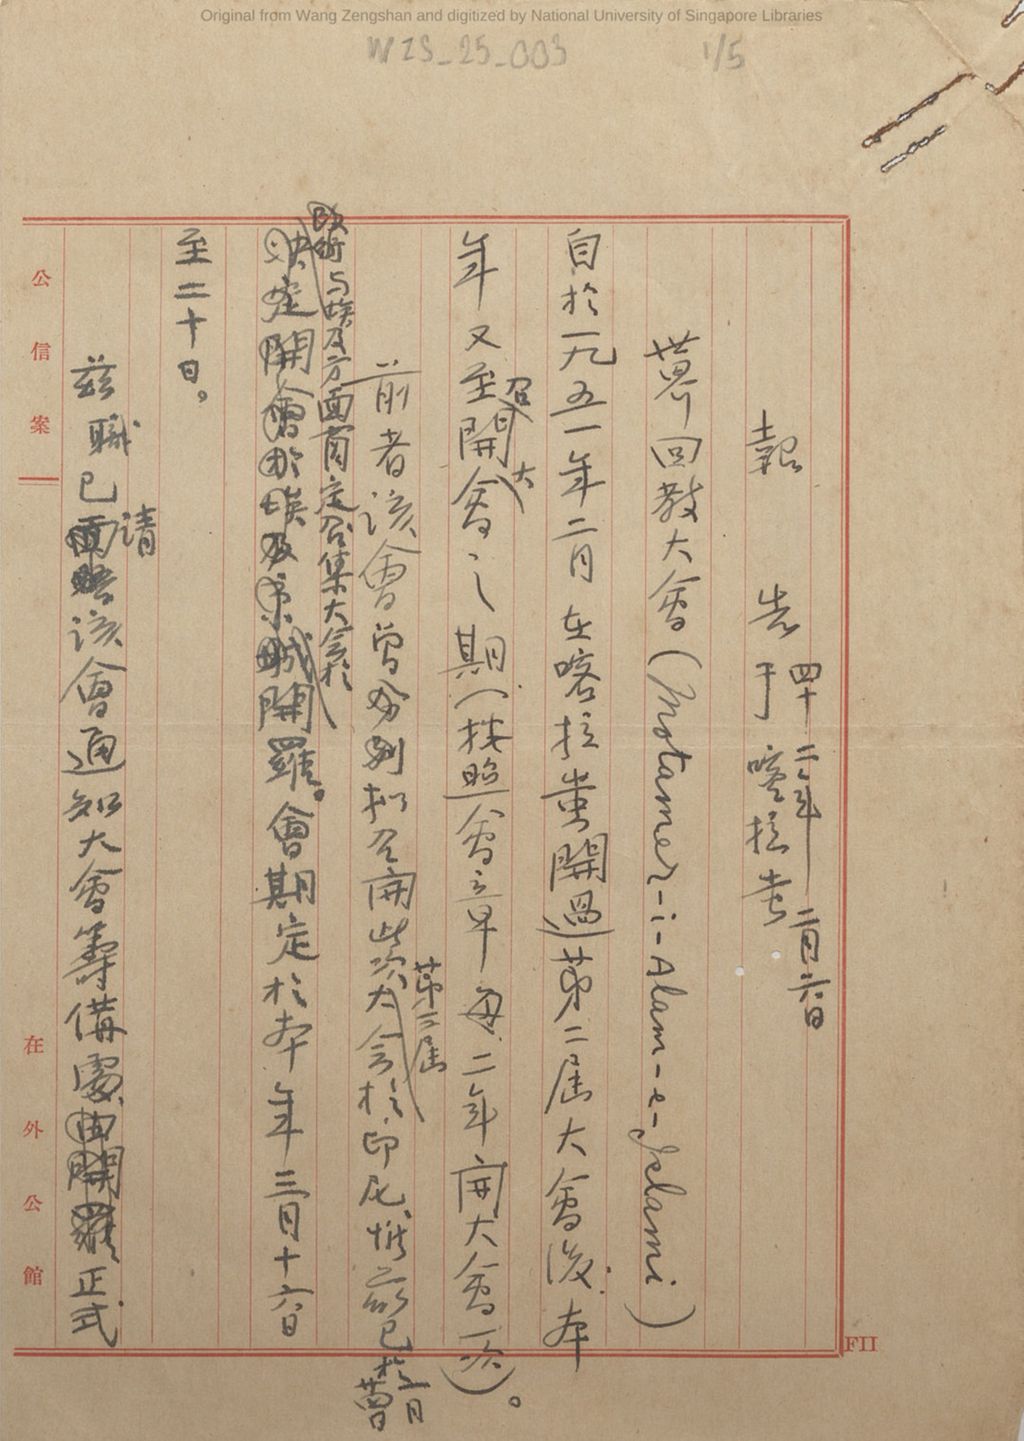 Original from Wang Zengshan and digitized by National University of Singapore Libraries
WZS_25_003 1/5
報告 四十二年二月六日
于喀拉蚩
世界回教大會(Motamer-i-Alam-e-Islami)
自於一九五一年二月在喀拉蚩開過第二屆大會後本
年又至召開大會之期(按照會章每二年開大會一次)。
前者該會曾分別擬召開此次大會第三屆於印尼惟茲已於二月
與埃及方面商定召集大会於
決定開會於埃及京城開羅。會期定於本年三月十六日
至二十日。
茲職已面請該會通知大會籌備處由開羅正式
公信案
在外公館
FII